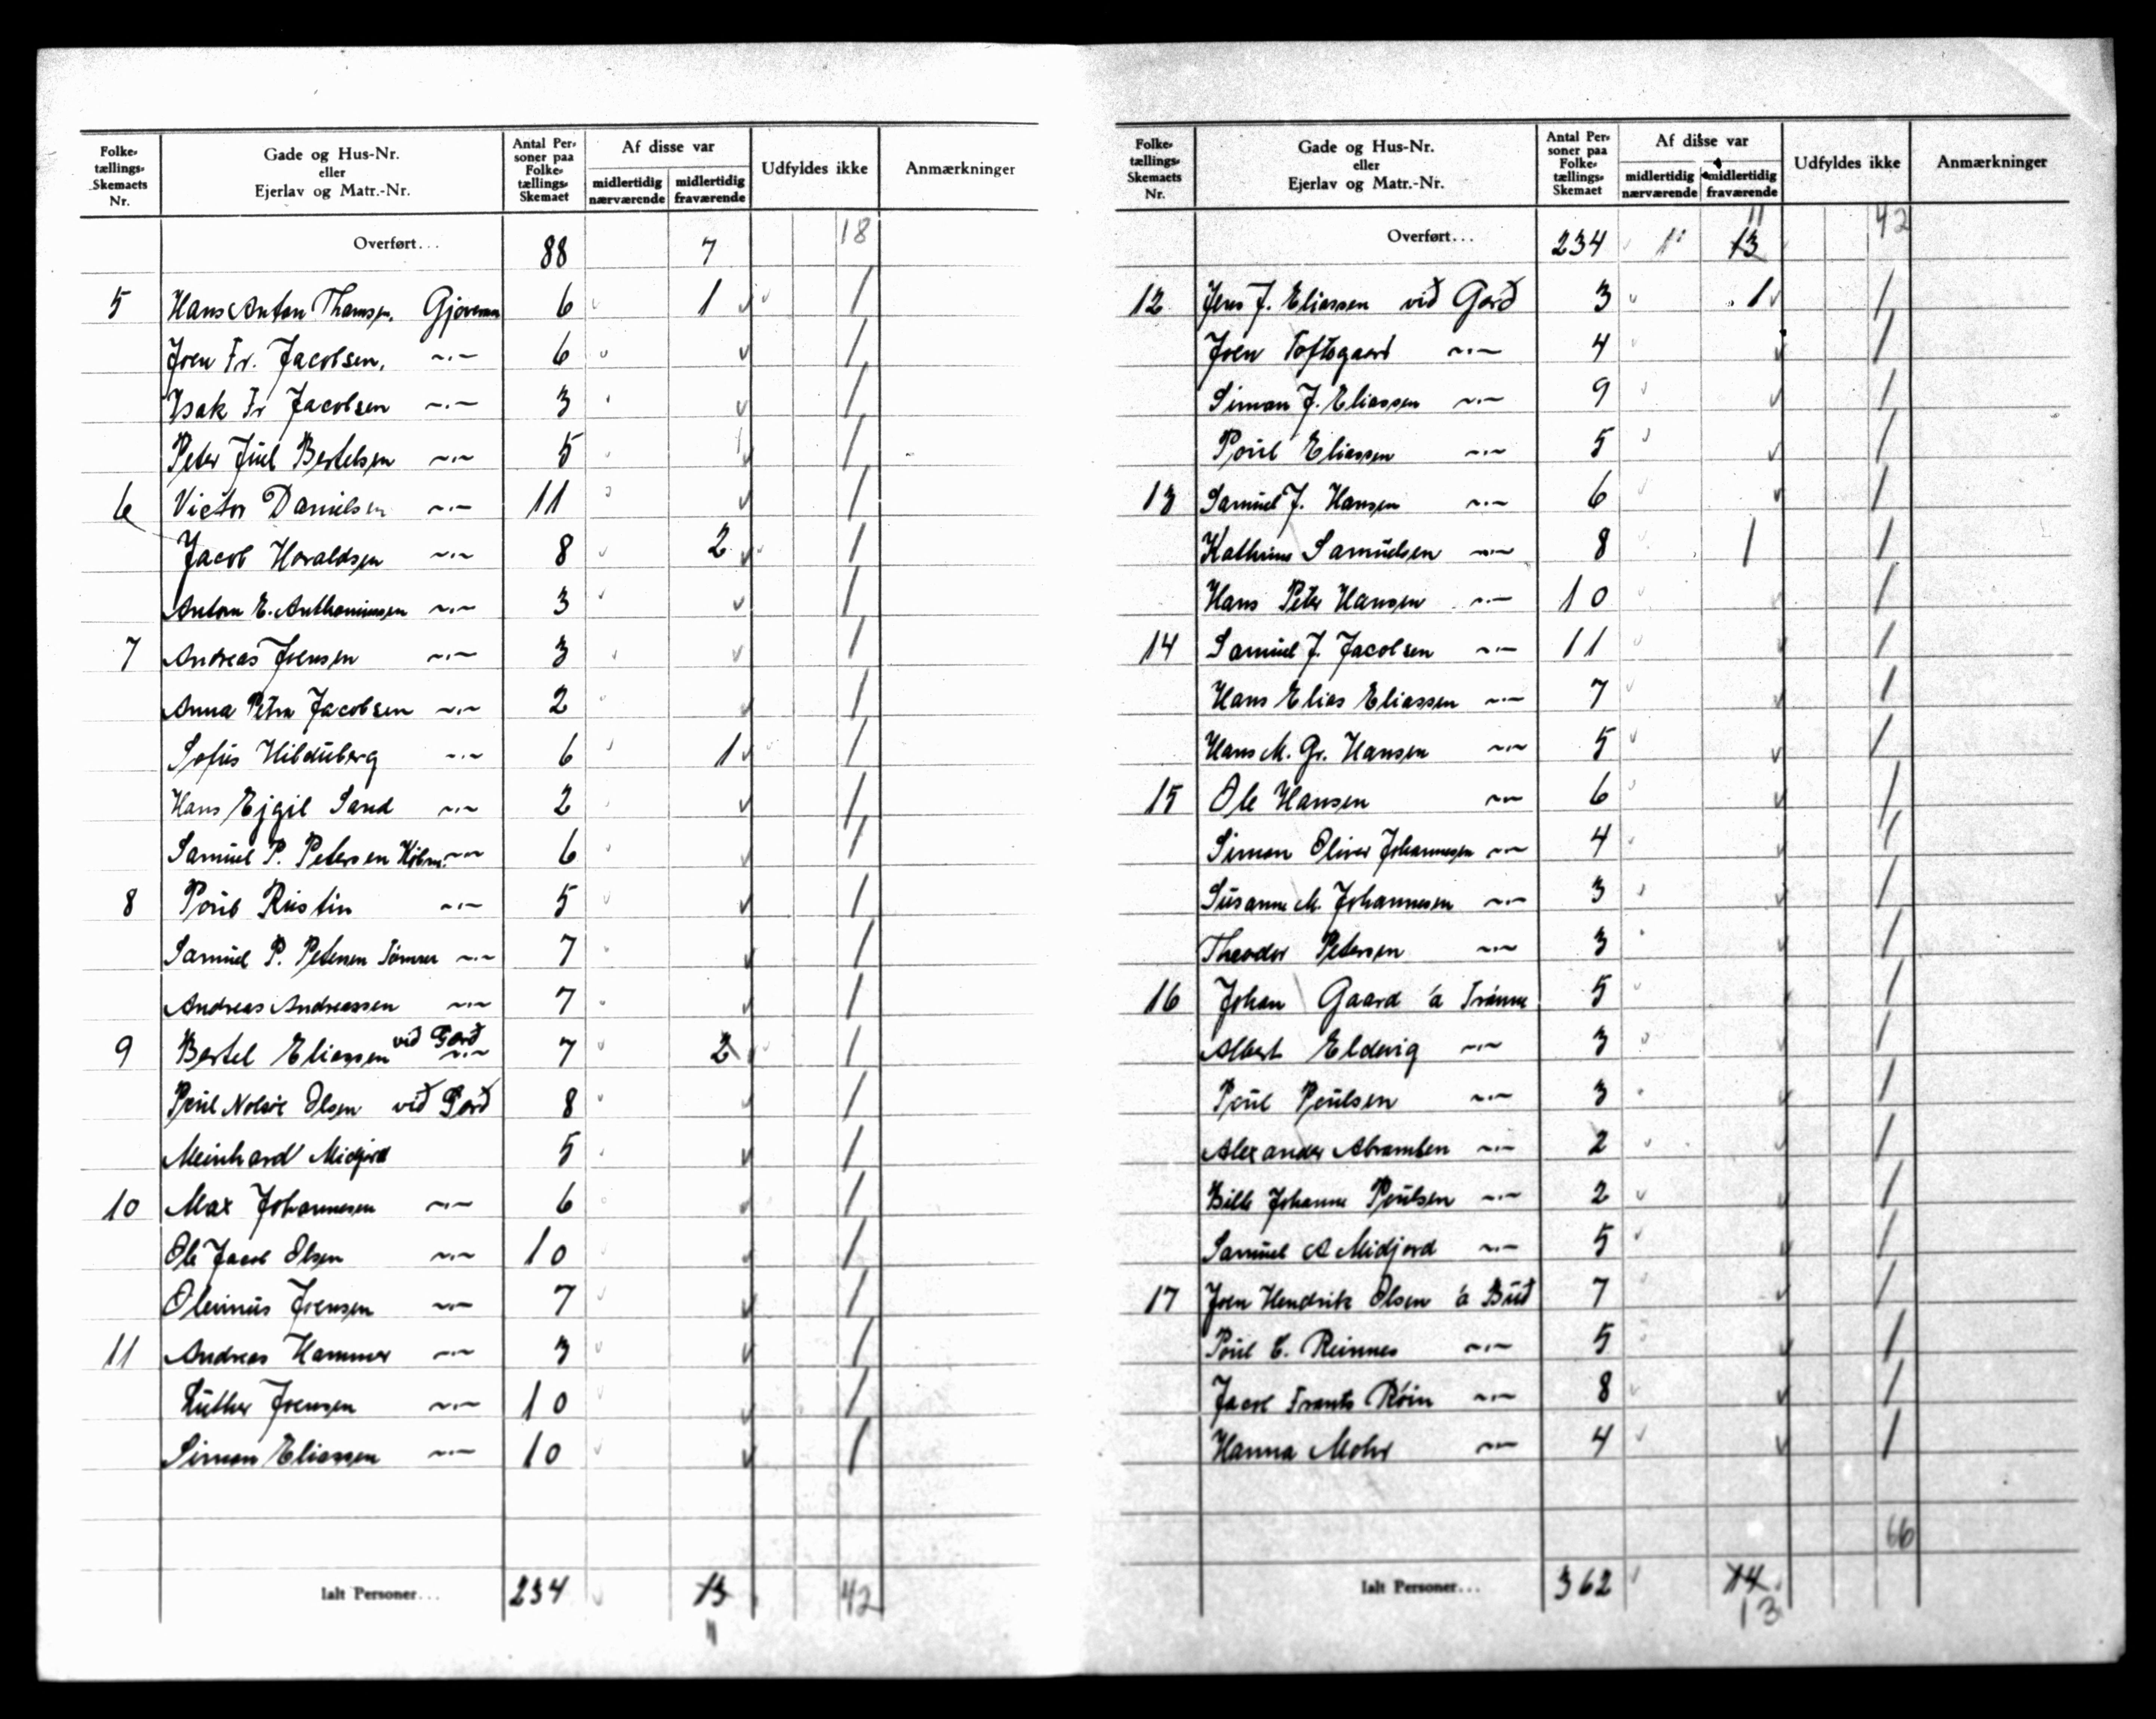 Folke-tællings-Skemaets Nr. | Gade og Hus-Nr. eller Ejerlav og Matr.-Nr. | Antal Personer paa Folke-tællings-Skemaet | Af disse var midlertidig nærværende | midlertidig fraværende | Udfyldes ikke | Anmærkninger
Overført... 88 7 18
5 Hans Anton Thomsen, 6 1 /
Joen Fr. Jacobsen, -.- 6 /
Isak Fr Jacobsen -.- 3 /
Peter Juel Bertelsen -.- 5 /
6 Victor Danielsen -.- 11 /
Jacob Haraldsen -.- 8 2 /
Anton E. Anthoniussen -.- 3 /
7 Andreas Joensen -.- 3 /
Anna Petra Jacobsen -.- 2 /
Sofus Hilduberg -.- 6 1 /
Hans Ejgil Sand -.- 2 /
Samuel P. Petersen Købm. -.- 6 /
8 Poul Ristin -.- 5 /
Samuel P. Petersen Tømrer -.- 7 /
Andreas Andreassen -.- 7 /
9 Bertel Eliassen við Garð -.- 7 2 /
Poul Nolsøe Olsen við Garð 8 /
Meinhard Midjord 5 /
10 Max Johannesen -.- 6 /
Ole Jacob Olsen -.- 10 /
Olevinus Joensen -.- 7 /
11 Andreas Hammer -.- 3 /
Luther Joensen -.- 10 /
Simon Eliassen -.- 10 /
Ialt Personer... 234 13 42
11
Folke-tællings-Skemaets Nr. | Gade og Hus-Nr. eller Ejerlav og Matr.-Nr. | Antal Personer paa Folke-tællings-Skemaet | Af disse var midlertidig nærværende | midlertidig fraværende | Udfyldes ikke | Anmærkninger
11
Overført... 234 13 42
12 Jens J. Eliassen við Garð 3 1 /
Joen Toftegaard -.- 4 /
Simon J. Eliassen -.- 9 /
Poul Eliassen -.- 5 /
13 Samuel J. Hansen -.- 6 /
Kathrine Samuelsen -.- 8 1 /
Hans Peter Hansen -.- 10 /
14 Samuel J. Jacobsen -.- 11 /
Hans Elias Eliassen -.- 7 /
Hans M. Gr. Hansen -.- 5 /
15 Ole Hansen -.- 6 /
Simon Oliver Johannesen -.- 4 /
Susanne M. Johannesen -.- 3 /
Theodor Petersen -.- 3 /
16 Johan Gaard 5 /
Albert Eldevig -.- 3 /
Poul Poulsen -.- 3 /
Alexander Abramsen -.- 2 /
Bille Johanne Poulsen -.- 2 /
Samuel A Midjord -.- 5 /
17 Joen Hendrik Olsen 7 /
Poul C. Reinnes -.- 5 /
Jacob Frants Røin -.- 8 /
Hanna Mohr -.- 4 /
66
Ialt Personer... 362 14
13